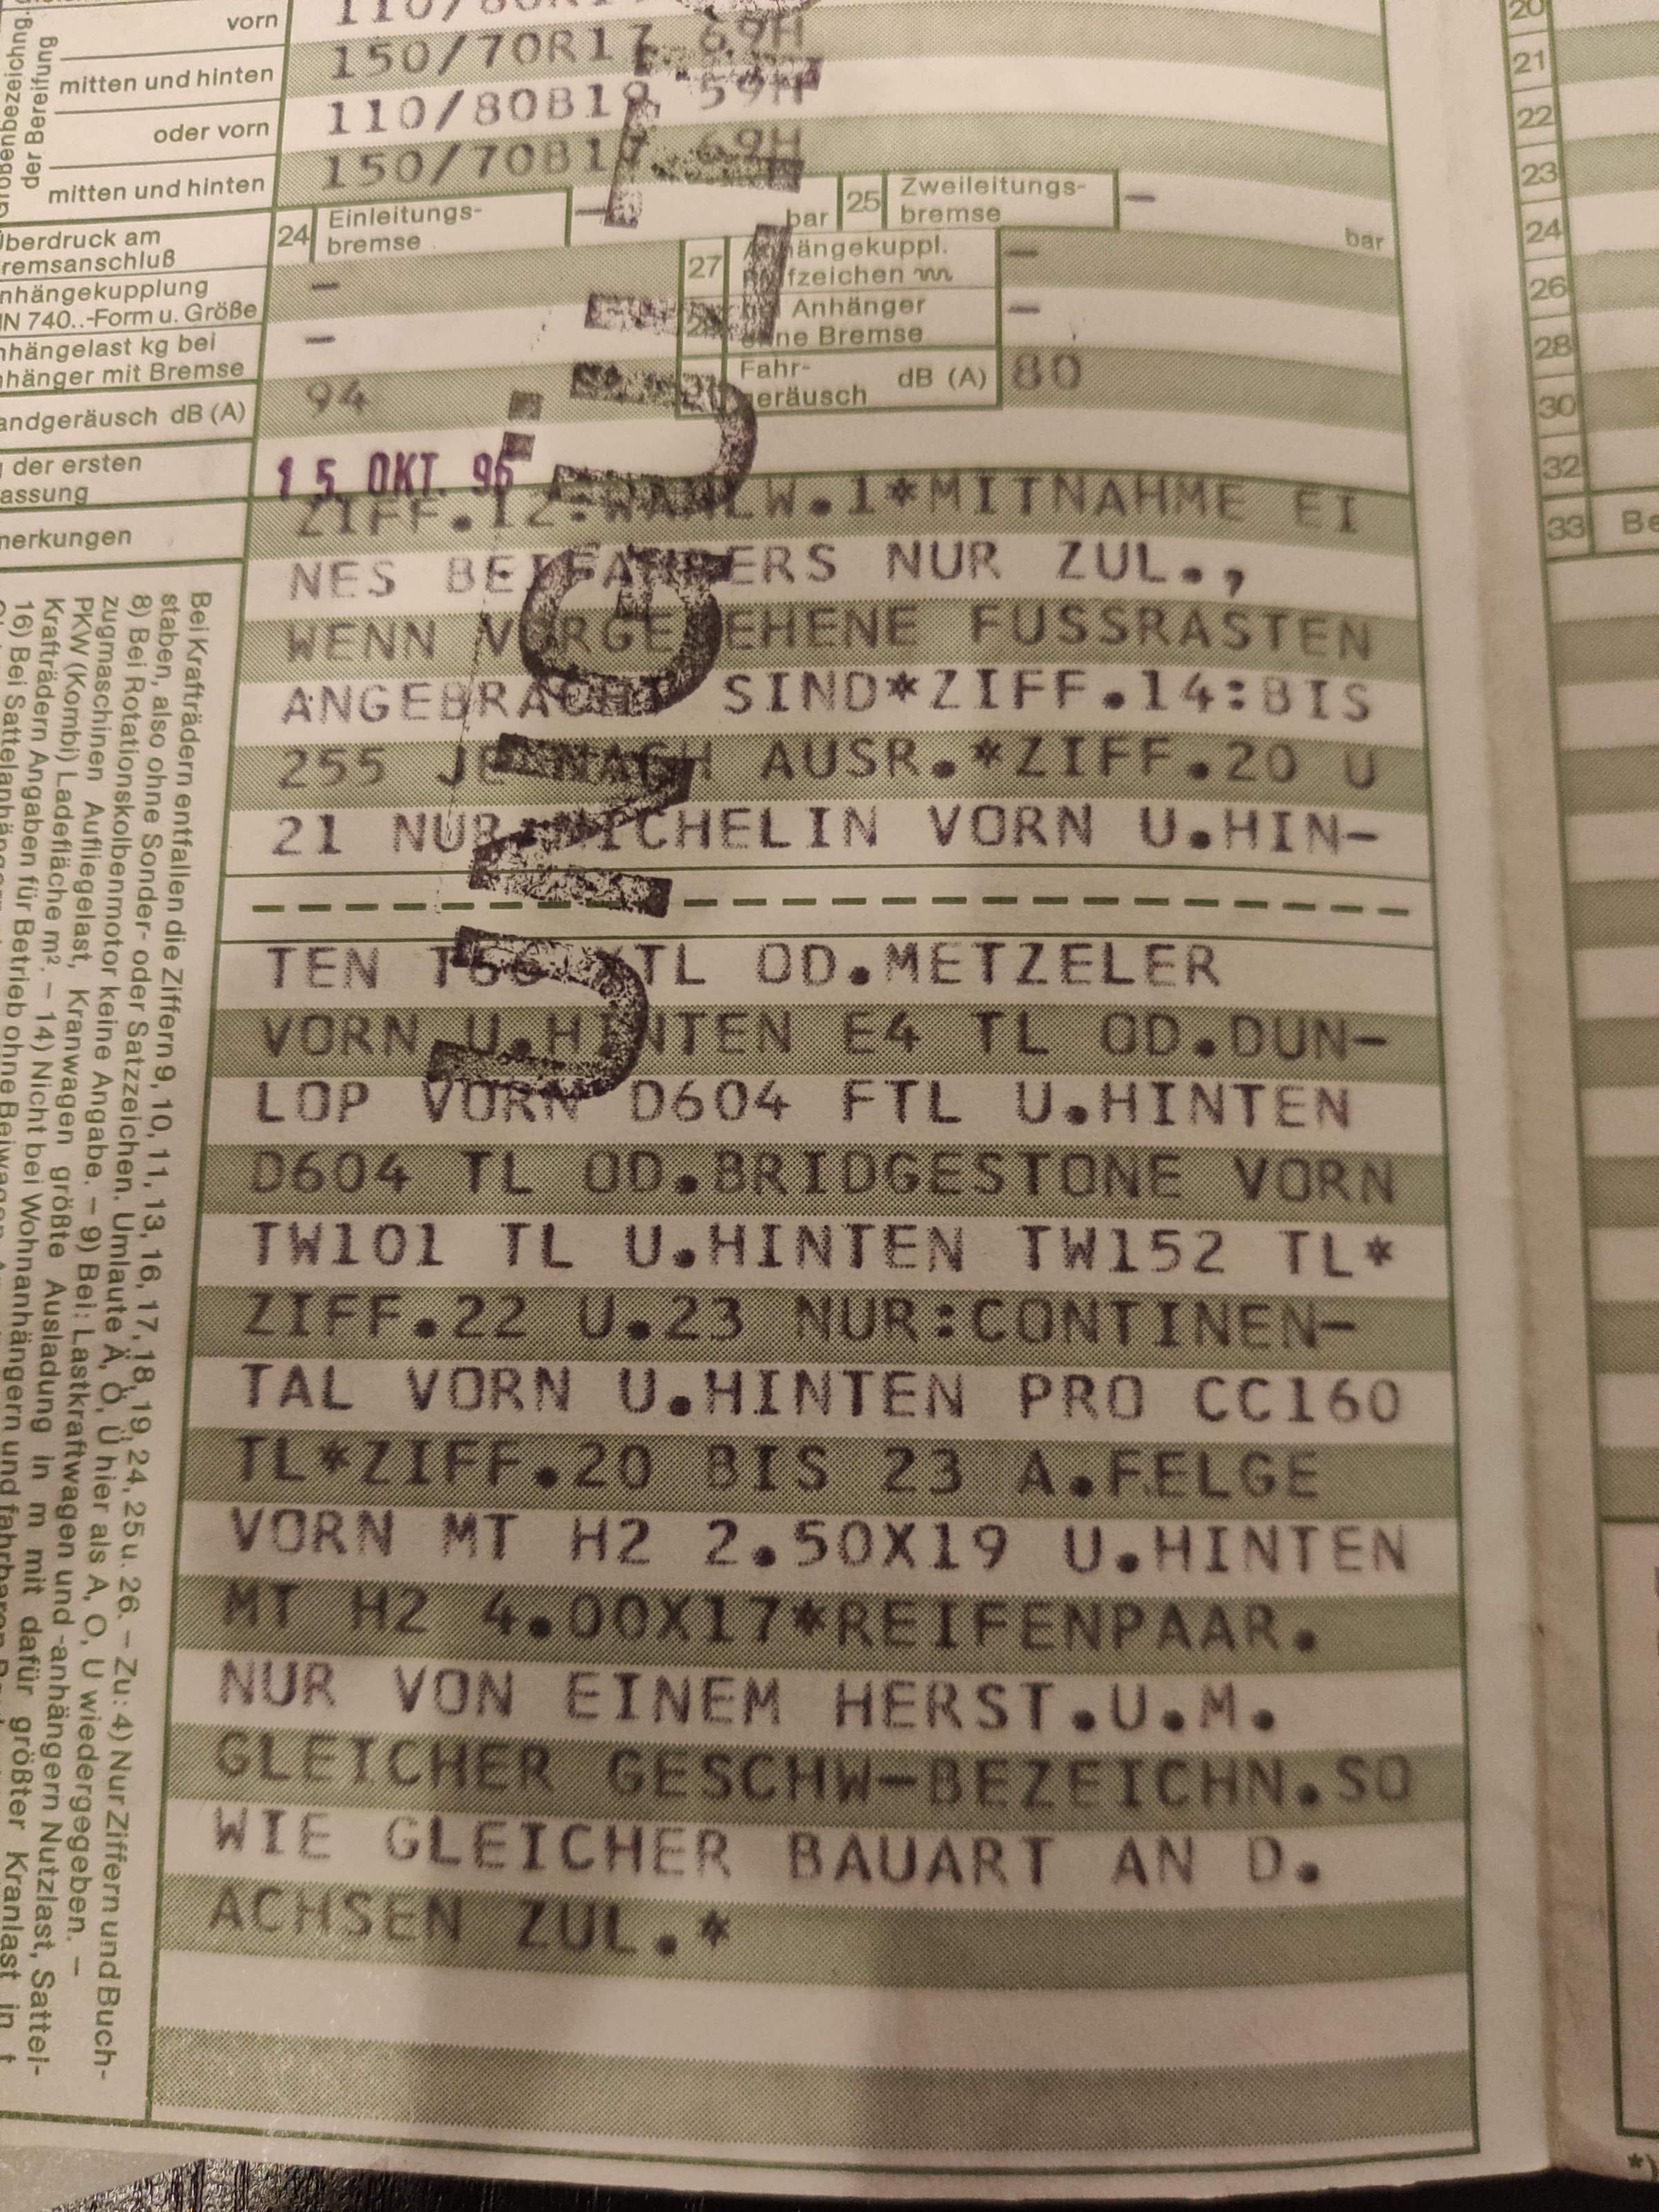 vorn 110/80R1
der Bereifung
mitten und hinten 150/70R17 69H
oder vorn 110/80B19 59H
mitten und hinten 150/70B17 69H
Überdruck am
Bremsanschluß
24 Einleitungs-
bremse – bar
25 Zweileitungs-
bremse – bar
nhängekupplung
IN 740..-Form u. Größe –
27 hängekuppl.
fzeichen –
nhängelast kg bei
nhänger mit Bremse –
Anhänger
ne Bremse –
andgeräusch dB (A) 94
Fahr-
geräusch dB (A) 80
der ersten
assung 15. OKT. 96
merkungen
ZIFF.12: W.1*MITNAHME EI
NES BEIFAHRERS NUR ZUL.,
WENN VORGESEHENE FUSSRASTEN
ANGEBRACHT SIND*ZIFF.14:BIS
255 JE NACH AUSR.*ZIFF.20 U
21 NUR MICHELIN VORN U.HIN-
TEN TL OD.METZELER
VORN U.HINTEN E4 TL OD.DUN-
LOP VORN D604 FTL U.HINTEN
D604 TL OD.BRIDGESTONE VORN
TW101 TL U.HINTEN TW152 TL*
ZIFF.22 U.23 NUR:CONTINEN-
TAL VORN U.HINTEN PRO CC160
TL*ZIFF.20 BIS 23 A.FELGE
VORN MT H2 2.50X19 U.HINTEN
MT H2 4.00X17*REIFENPAAR.
NUR VON EINEM HERST.U.M.
GLEICHER GESCHW-BEZEICHN.SO
WIE GLEICHER BAUART AN D.
ACHSEN ZUL.*
Bei Krafträdern entfallen die Ziffern 9, 10, 11, 13, 16, 17, 18, 19, 24, 25 u. 26. – Zu: 4) Nur Ziffern und Buch-
staben, also ohne Sonder- oder Satzzeichen. Umlaute Ä, Ö, Ü hier als A, O, U wiedergegeben. –
8) Bei Rotationskolbenmotor keine Angabe. – 9) Bei: Lastkraftwagen und -anhängern Nutzlast, Sattel-
zugmaschinen Aufliegelast, Kranwagen größte Ausladung in m mit dafür größter Kranlast in t
PKW (Kombi) Ladefläche m². – 14) Nicht bei Wohnanhängern und fahrbaren
Krafträdern Angaben für Betrieb ohne Beiwagen
16) Bei Sattelanhängern
UNGÜLTIG
20
21
22
23
24
26
28
30
32
33 Be